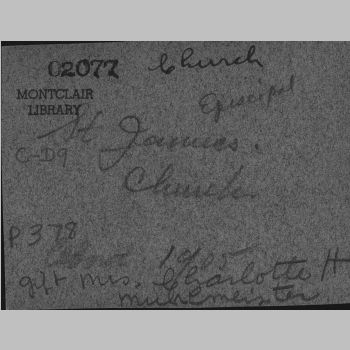 02077 Church
MONTCLAIR
LIBRARY
Episcopal
St James.
C-D9
Church
P378
About 1905
gift Mrs. Charlotte H
Muhlmeister